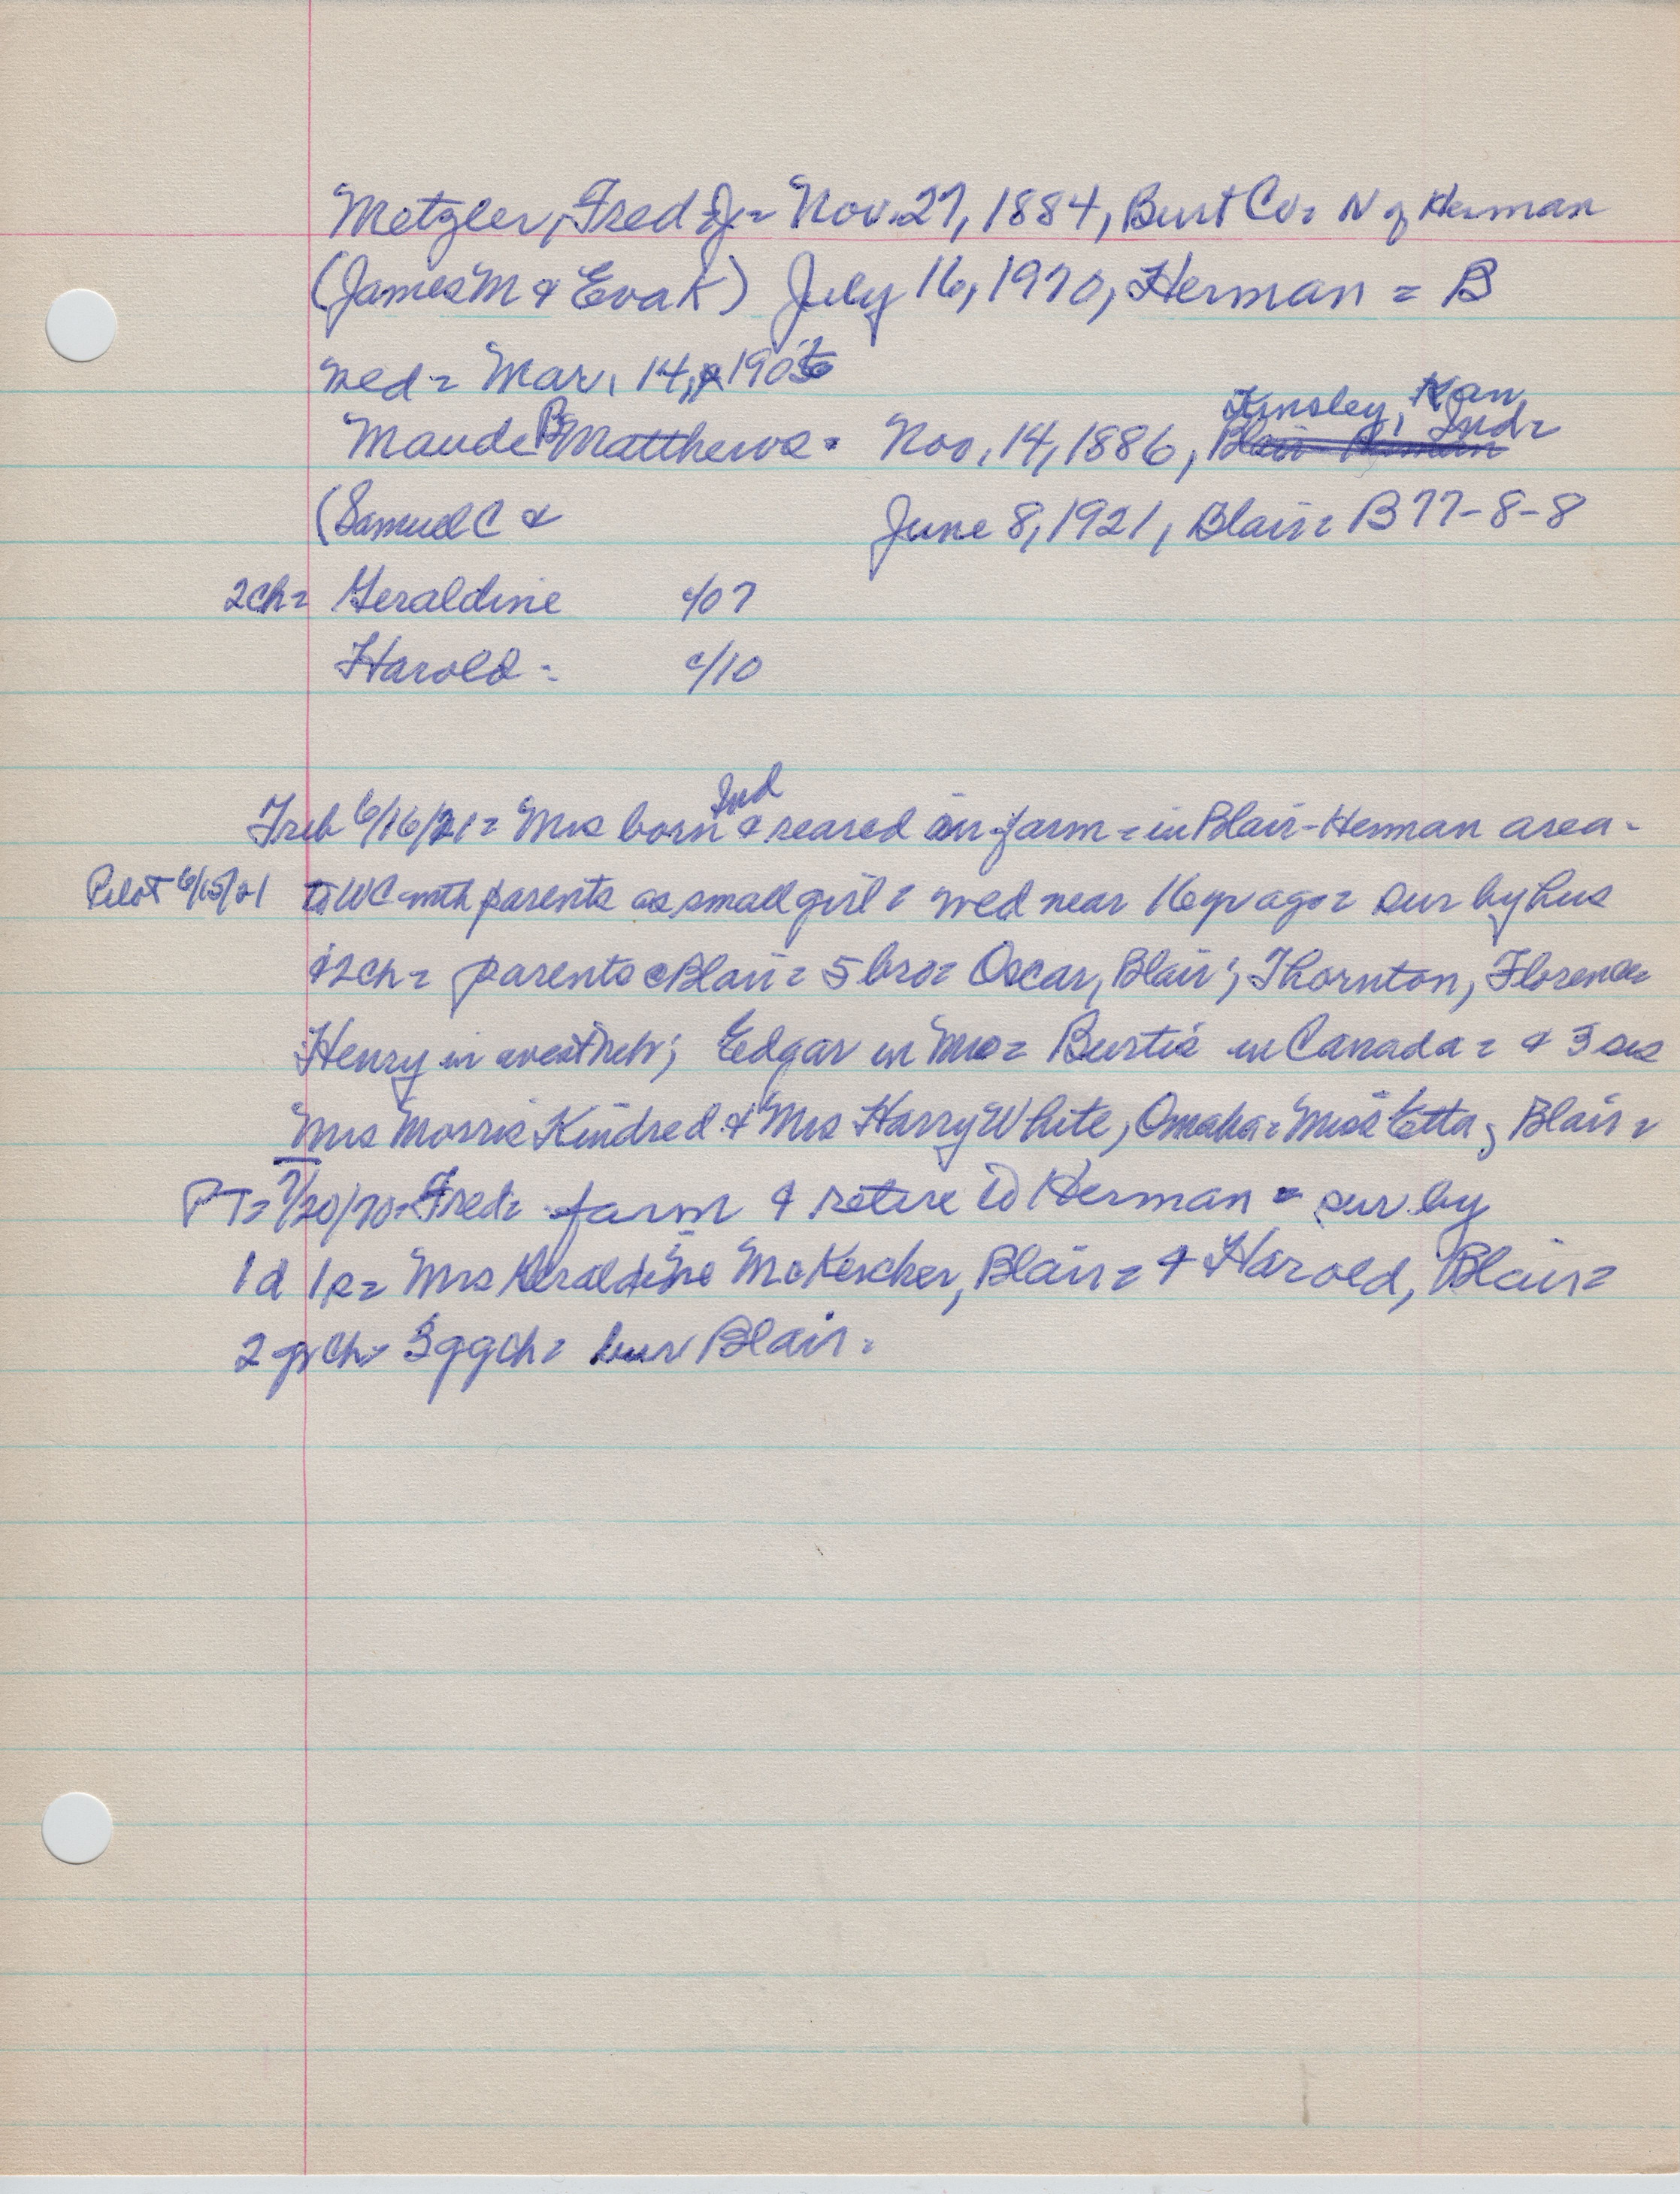 Metzler, Fred J = Nov. 27, 1884, Burt Co = N of Herman
(James M & Eva K) July 16, 1970, Herman = B
wed = Mar. 14, 1906
Kinsley, Kan,
Maude B Matthews = Nov. 14, 1886, Blair Herman Ind =
(Samuel C & June 8, 1921, Blair = B 77-8-8
2ch = Geraldine c/07
Harold = c/10
Ind
Trib 6/16/21 = Mrs born & reared on farm = in Blair-Herman area -
Pilot 6/15/21 to WC with parents as small girl = wed near 16 yr ago = sur by hus
& 2ch = parents Blair = 5 bro = Oscar, Blair; Thornton, Florence
Henry in west Neb; Edgar in Mo = Burtis in Canada = & 3 sis
Mrs Morris Kindred & Mrs Harry White, Omaha = Miss Etta, Blair =
PT = 7/20/70 = Fred = farm & retire to Herman = sur by
1d 1s = Mrs Geraldine McKercher, Blair = & Harold, Blair =
2 gr ch 3 ggch = bur Blair =